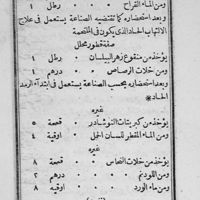 ومن الماء القراح ٠ ٠ رطل ١
وبعد استحضاره كما تقتضيه الصناعة يستعمل فى علاج
الالتهاب الحاد الذى يكون فى الملتحمة
صفة قطور محلل
يؤخذ من منقوع زهر البيلسان رطل ١
ومن خلات الرصاص ٠ درهم ١
وبعد استحضاره بحسب الصناعة يستعمل فى ابتداء الرمد
الحاد *
غيره
يؤخذ من كبريتات النوشادر قمحة ٥
ومن الماء المقطر للسان الحمل أوقية ٤
غيره
يؤخذ من خلات النحاس ٠ ٠ قمحة ٨
ومن اللودنم ٠ ٠ درهم ٢
ومن ماء الورد ٠ ٠ أوقية ٨